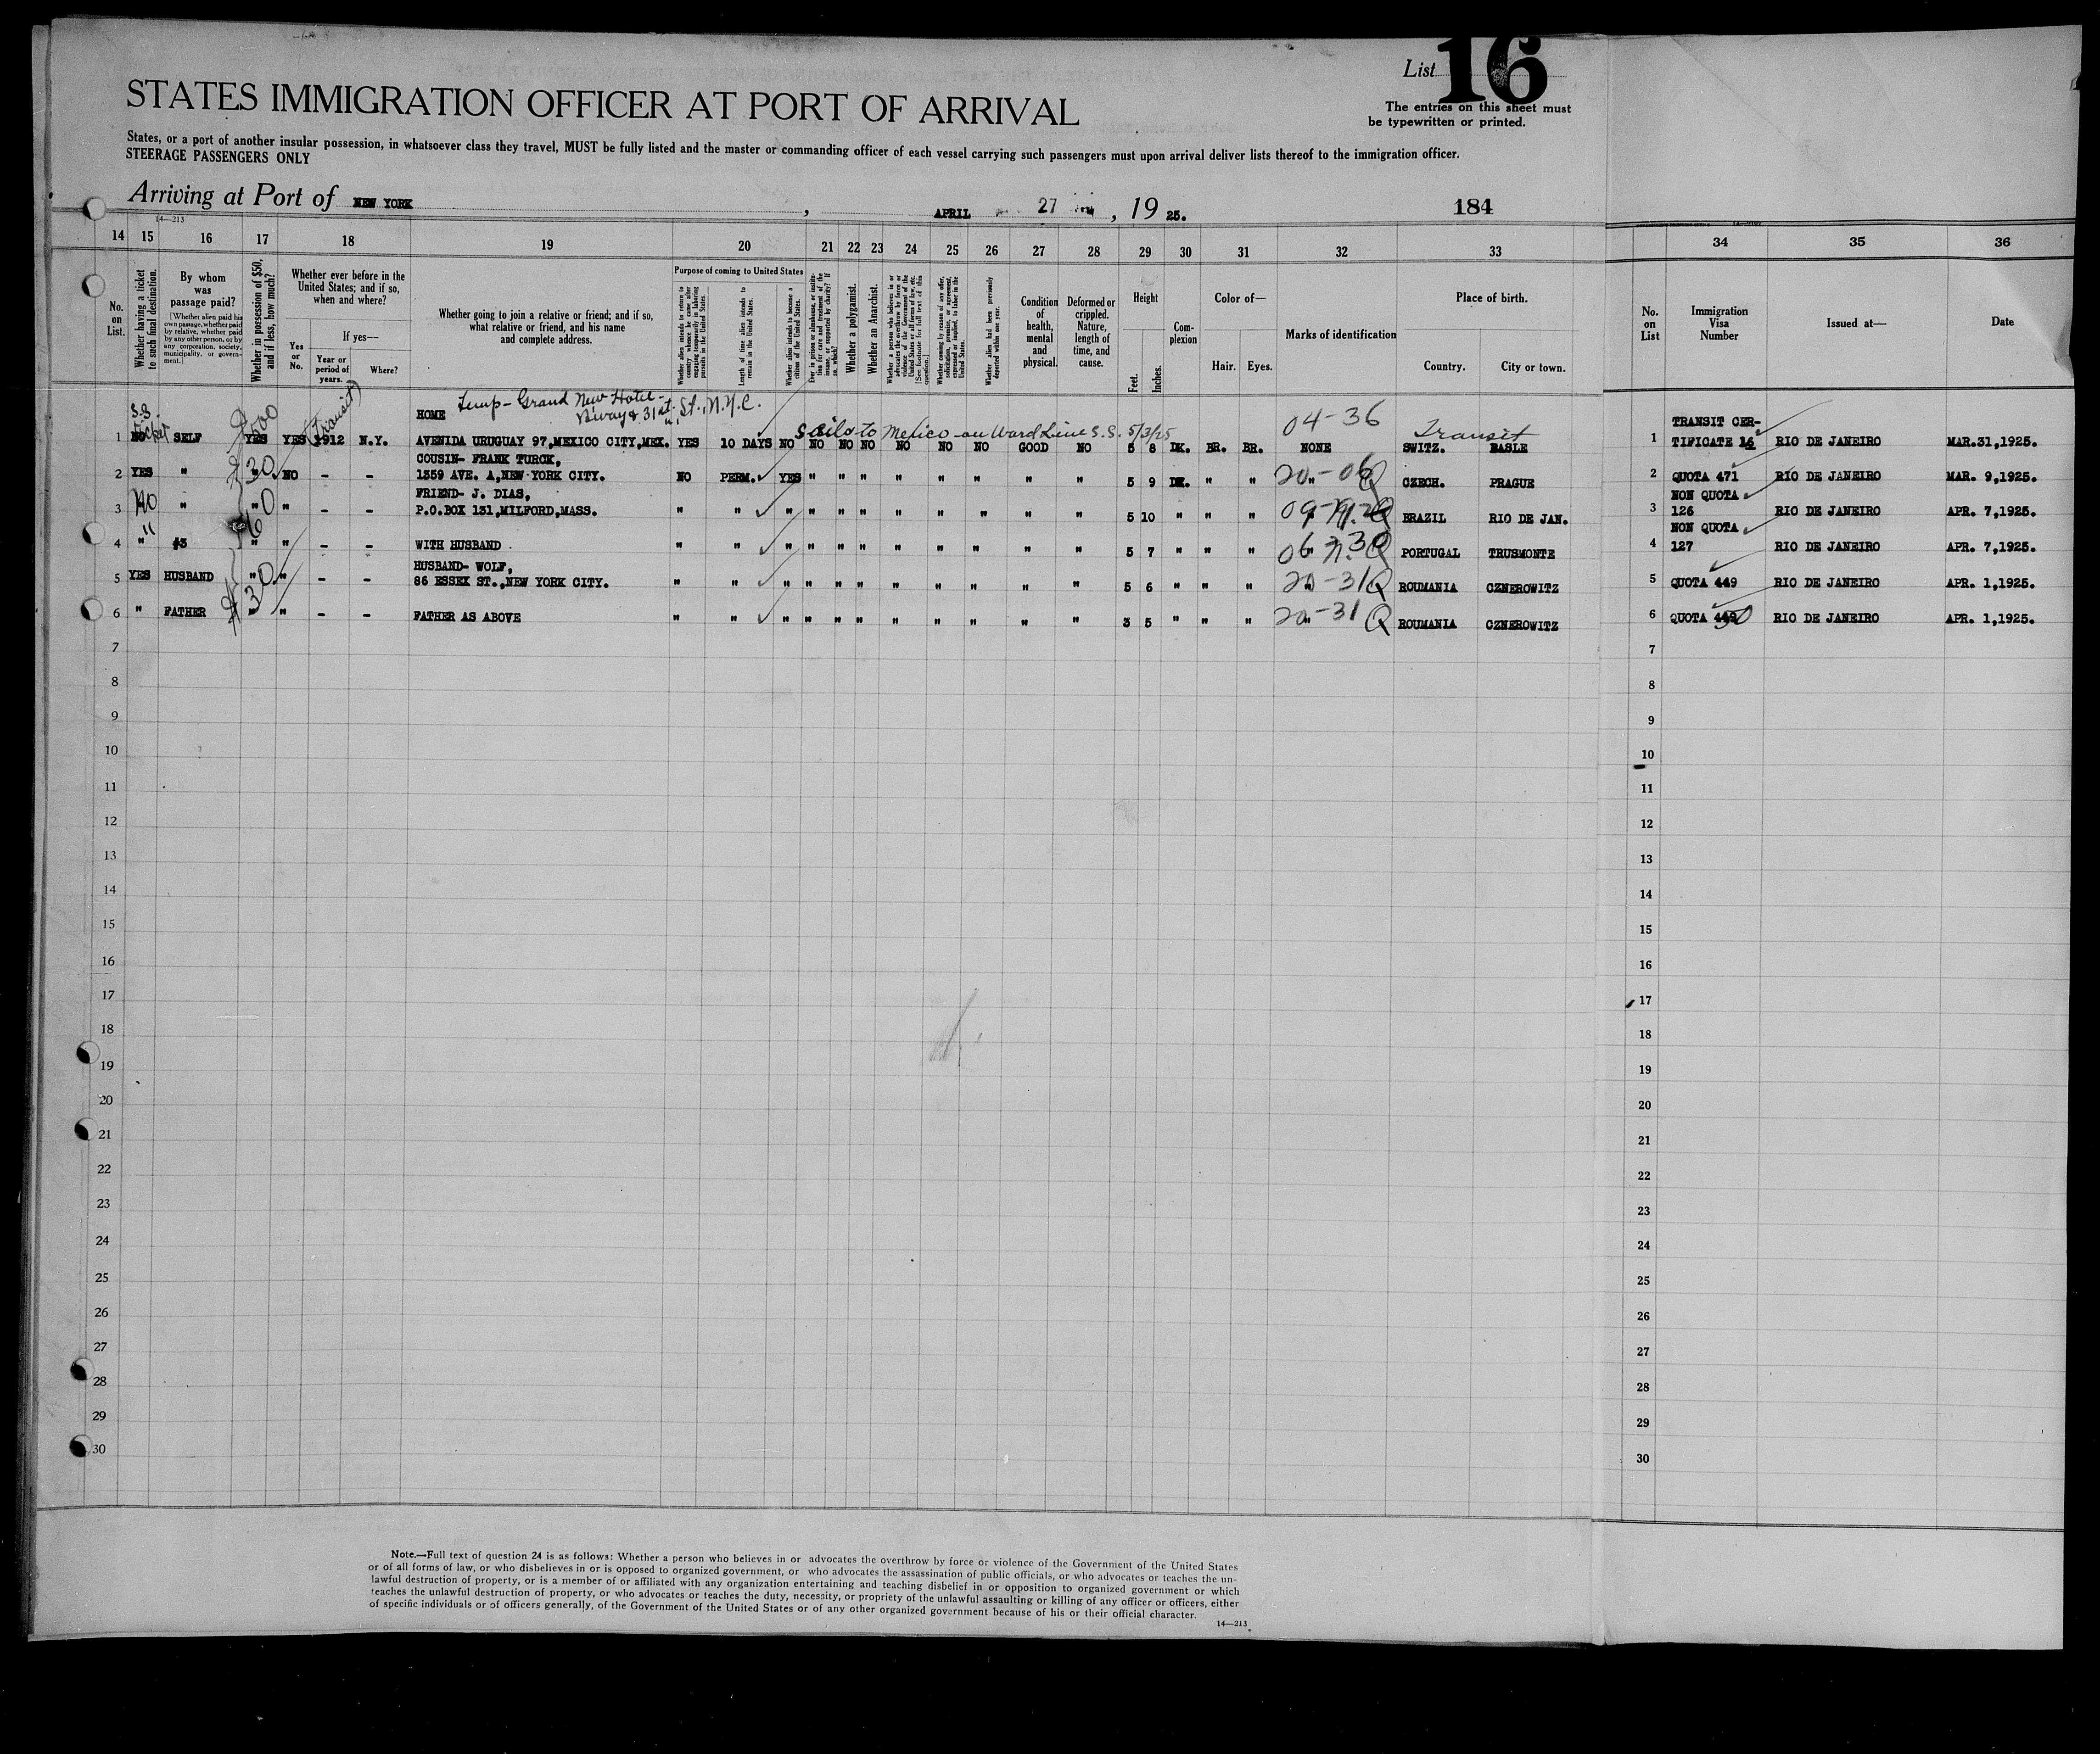 List 16
The entries on this sheet must
be typewritten or printed.
STATES IMMIGRATION OFFICER AT PORT OF ARRIVAL
States, or a port of another insular possession, in whatsoever class they travel, MUST be fully listed and the master or commanding officer of each vessel carrying such passengers must upon arrival deliver lists thereof to the immigration officer.
STEERAGE PASSENGERS ONLY
Arriving at Port of NEW YORK, APRIL 27, 19 25. 184
14—213
14 15 16 17 18 19 20 21 22 23 24 25 26 27 28 29 30 31 32 33 34 35 36
No. on List.
Whether having a ticket to such final destination.
By whom was passage paid?
[Whether alien paid his own passage, whether paid by relative, whether paid by any other person, or by any corporation, society, municipality, or government.]
Whether in possession of $50, and if less, how much?
Whether ever before in the United States; and if so, when and where?
Yes or No.
If yes—
Year or period of years.
Where?
Whether going to join a relative or friend; and if so, what relative or friend, and his name and complete address.
Purpose of coming to United States
Whether alien intends to return to country whence he came after engaging temporarily in laboring pursuits in the United States.
Length of time alien intends to remain in the United States.
Whether alien intends to become a citizen of the United States.
Whether a polygamist.
Whether an Anarchist.
Whether alien had been previously deported within one year.
Condition of health, mental and physical.
Deformed or crippled. Nature, length of time, and cause.
Height
Feet. Inches.
Complexion
Color of—
Hair. Eyes.
Marks of identification
Place of birth.
Country. City or town.
No. on List
Immigration Visa Number
Issued at—
Date
Temp - Grand New Hotel -
B'way & 31st St., N.Y.C.
S.S. ticket $500 (Transit)
HOME
Sails to Mexico on Ward Line S.S. 5/3/25
04-36 Transit
TRANSIT CER-
1 NO SELF YES YES 1912 N.Y. AVENIDA URUGUAY 97, MEXICO CITY, MEX. YES 10 DAYS NO NO NO NO NO NO NO GOOD NO 5 8 DK. BR. BR. NONE SWITZ. BASLE 1 TIFICATE 16 RIO DE JANEIRO MAR.31,1925.
COUSIN- FRANK TURCK,
2 YES " $30 " NO - - 1359 AVE. A, NEW YORK CITY. NO PERM. YES " " " " " " " " 5 9 DK. " " 20-06 Q CZECH. PRAGUE 2 QUOTA 471 RIO DE JANEIRO MAR. 9,1925.
FRIEND- J. DIAS,
NON QUOTA
3 NO " " " - - P.O.BOX 131, MILFORD, MASS. " " " " " " " " " " " 5 10 " " " BRAZIL RIO DE JAN. 3 126 RIO DE JANEIRO APR. 7,1925.
NON QUOTA
4 " #3 " " - - WITH HUSBAND " " " " " " " " " " " 5 7 " " " PORTUGAL TRUSMONTE 4 127 RIO DE JANEIRO APR. 7,1925.
HUSBAND- WOLF,
5 YES HUSBAND " $30 " - - 86 ESSEX ST., NEW YORK CITY. " " " " " " " " " " " 5 6 " " " 20-31 Q ROUMANIA CZNEROWITZ 5 QUOTA 449 RIO DE JANEIRO APR. 1,1925.
6 " FATHER " " - - FATHER AS ABOVE " " " " " " " " " " " 3 5 " " " 20-31 Q ROUMANIA CZNEROWITZ 6 QUOTA 449 50 RIO DE JANEIRO APR. 1,1925.
7 7
8 8
9 9
10 10
11 11
12 12
13 13
14 14
15 15
16 16
17 17
18 18
19 19
20 20
21 21
22 22
23 23
24 24
25 25
26 26
27 27
28 28
29 29
30 30
Note.—Full text of question 24 is as follows: Whether a person who believes in or advocates the overthrow by force or violence of the Government of the United States
or of all forms of law, or who disbelieves in or is opposed to organized government, or who advocates the assassination of public officials, or who advocates or teaches the un-
lawful destruction of property, or is a member of or affiliated with any organization entertaining and teaching disbelief in or opposition to organized government or which
teaches the unlawful destruction of property, or who advocates or teaches the duty, necessity, or propriety of the unlawful assaulting or killing of any officer or officers, either
of specific individuals or of officers generally, of the Government of the United States or of any other organized government because of his or their official character.
14—213